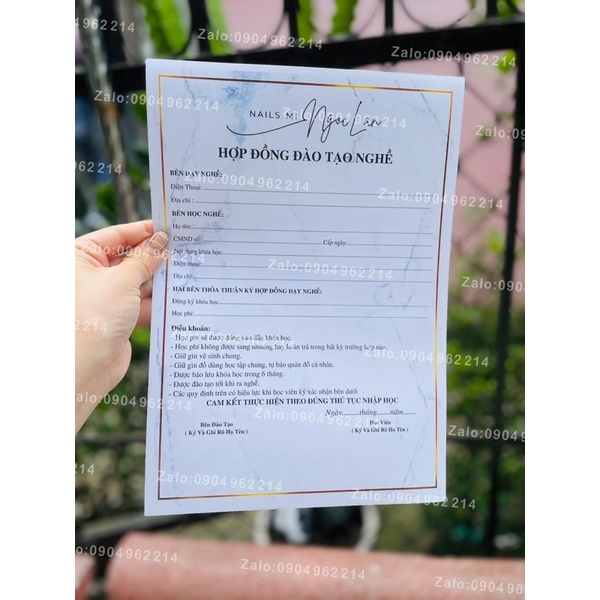 NAILS MI Ngọc Lan
HỢP ĐỒNG ĐÀO TẠO NGHỀ
BÊN DẠY NGHỀ:
Điện Thoại:
Địa chỉ :
BÊN HỌC NGHỀ:
Họ tên:
CMND số: Cấp ngày:
Nội dung khóa học:
Điện thoại:
Địa chỉ:
HAI BÊN THỎA THUẬN KÝ HỢP ĐỒNG DẠY NGHỀ:
Đăng ký khóa học
Học phí:
Điều khoản:
- Học phí sẽ được đóng vào đầu khóa học.
- Học phí không được sang nhượng hay hoàn trả trong bất kỳ trường hợp nào.
- Giữ gìn vệ sinh chung.
- Giữ gìn đồ dùng học tập chung, tự bảo quản đồ cá nhân.
- Được bảo lưu khóa học trong 6 tháng.
- Được đào tạo tới khi ra nghề.
- Các quy định trên có hiệu lực khi học viên ký xác nhận bên dưới
CAM KẾT THỰC HIỆN THEO ĐÚNG THỦ TỤC NHẬP HỌC
Ngày........tháng....năm.......
Bên Đào Tạo Học Viên
( Ký Và Ghi Rõ Họ Tên ) ( Ký Và Ghi Rõ Họ Tên )
Zalo:0904962214